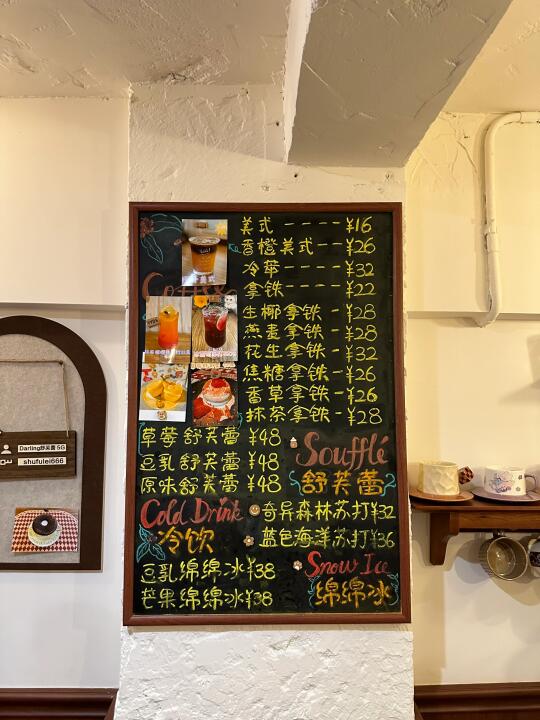 美式----¥16
香橙美式--¥26
冷萃----¥32
Coffee 拿铁----¥22
生椰拿铁-¥28
燕麦拿铁-¥28
花生拿铁-¥32
焦糖拿铁-¥26
香草拿铁-¥26
抹茶拿铁-¥28
草莓舒芙蕾¥48
豆乳舒芙蕾¥48
原味舒芙蕾¥48
Soufflé
舒芙蕾
Cold Drink
冷饮
奇异森林苏打¥32
蓝色海洋苏打¥36
豆乳绵绵冰¥38
芒果绵绵冰¥38
Snow Ice
绵绵冰
Darling舒芙蕾 5G
shufulei666